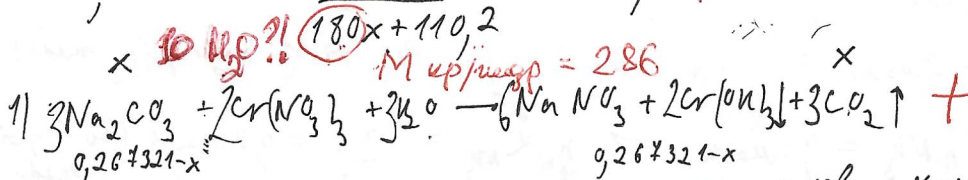 180x+110,2
10 H₂O?!
x M кр/гидр = 286 x
1) 3Na₂CO₃ + 2Cr(NO₃)₃ + 3H₂O → 6NaNO₃ + 2Cr(OH)₃↓ + 3CO₂↑ +
0,267321-x 0,267321-x